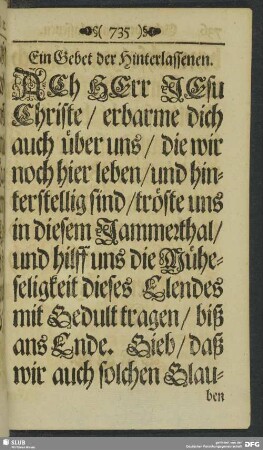 ( 735 )
Ein Gebet der Hinterlassenen.
ACh HErr JEsu
Christe / erbarme dich
auch über uns / die wir
noch hier leben / und hin-
terstellig sind / tröste uns
in diesem Jammerthal /
und hilff uns die Mühe-
seligkeit dieses Elendes
mit Gedult tragen / biß
ans Ende. Gieb / daß
wir auch solchen Glau-
ben
SLUB
DFG